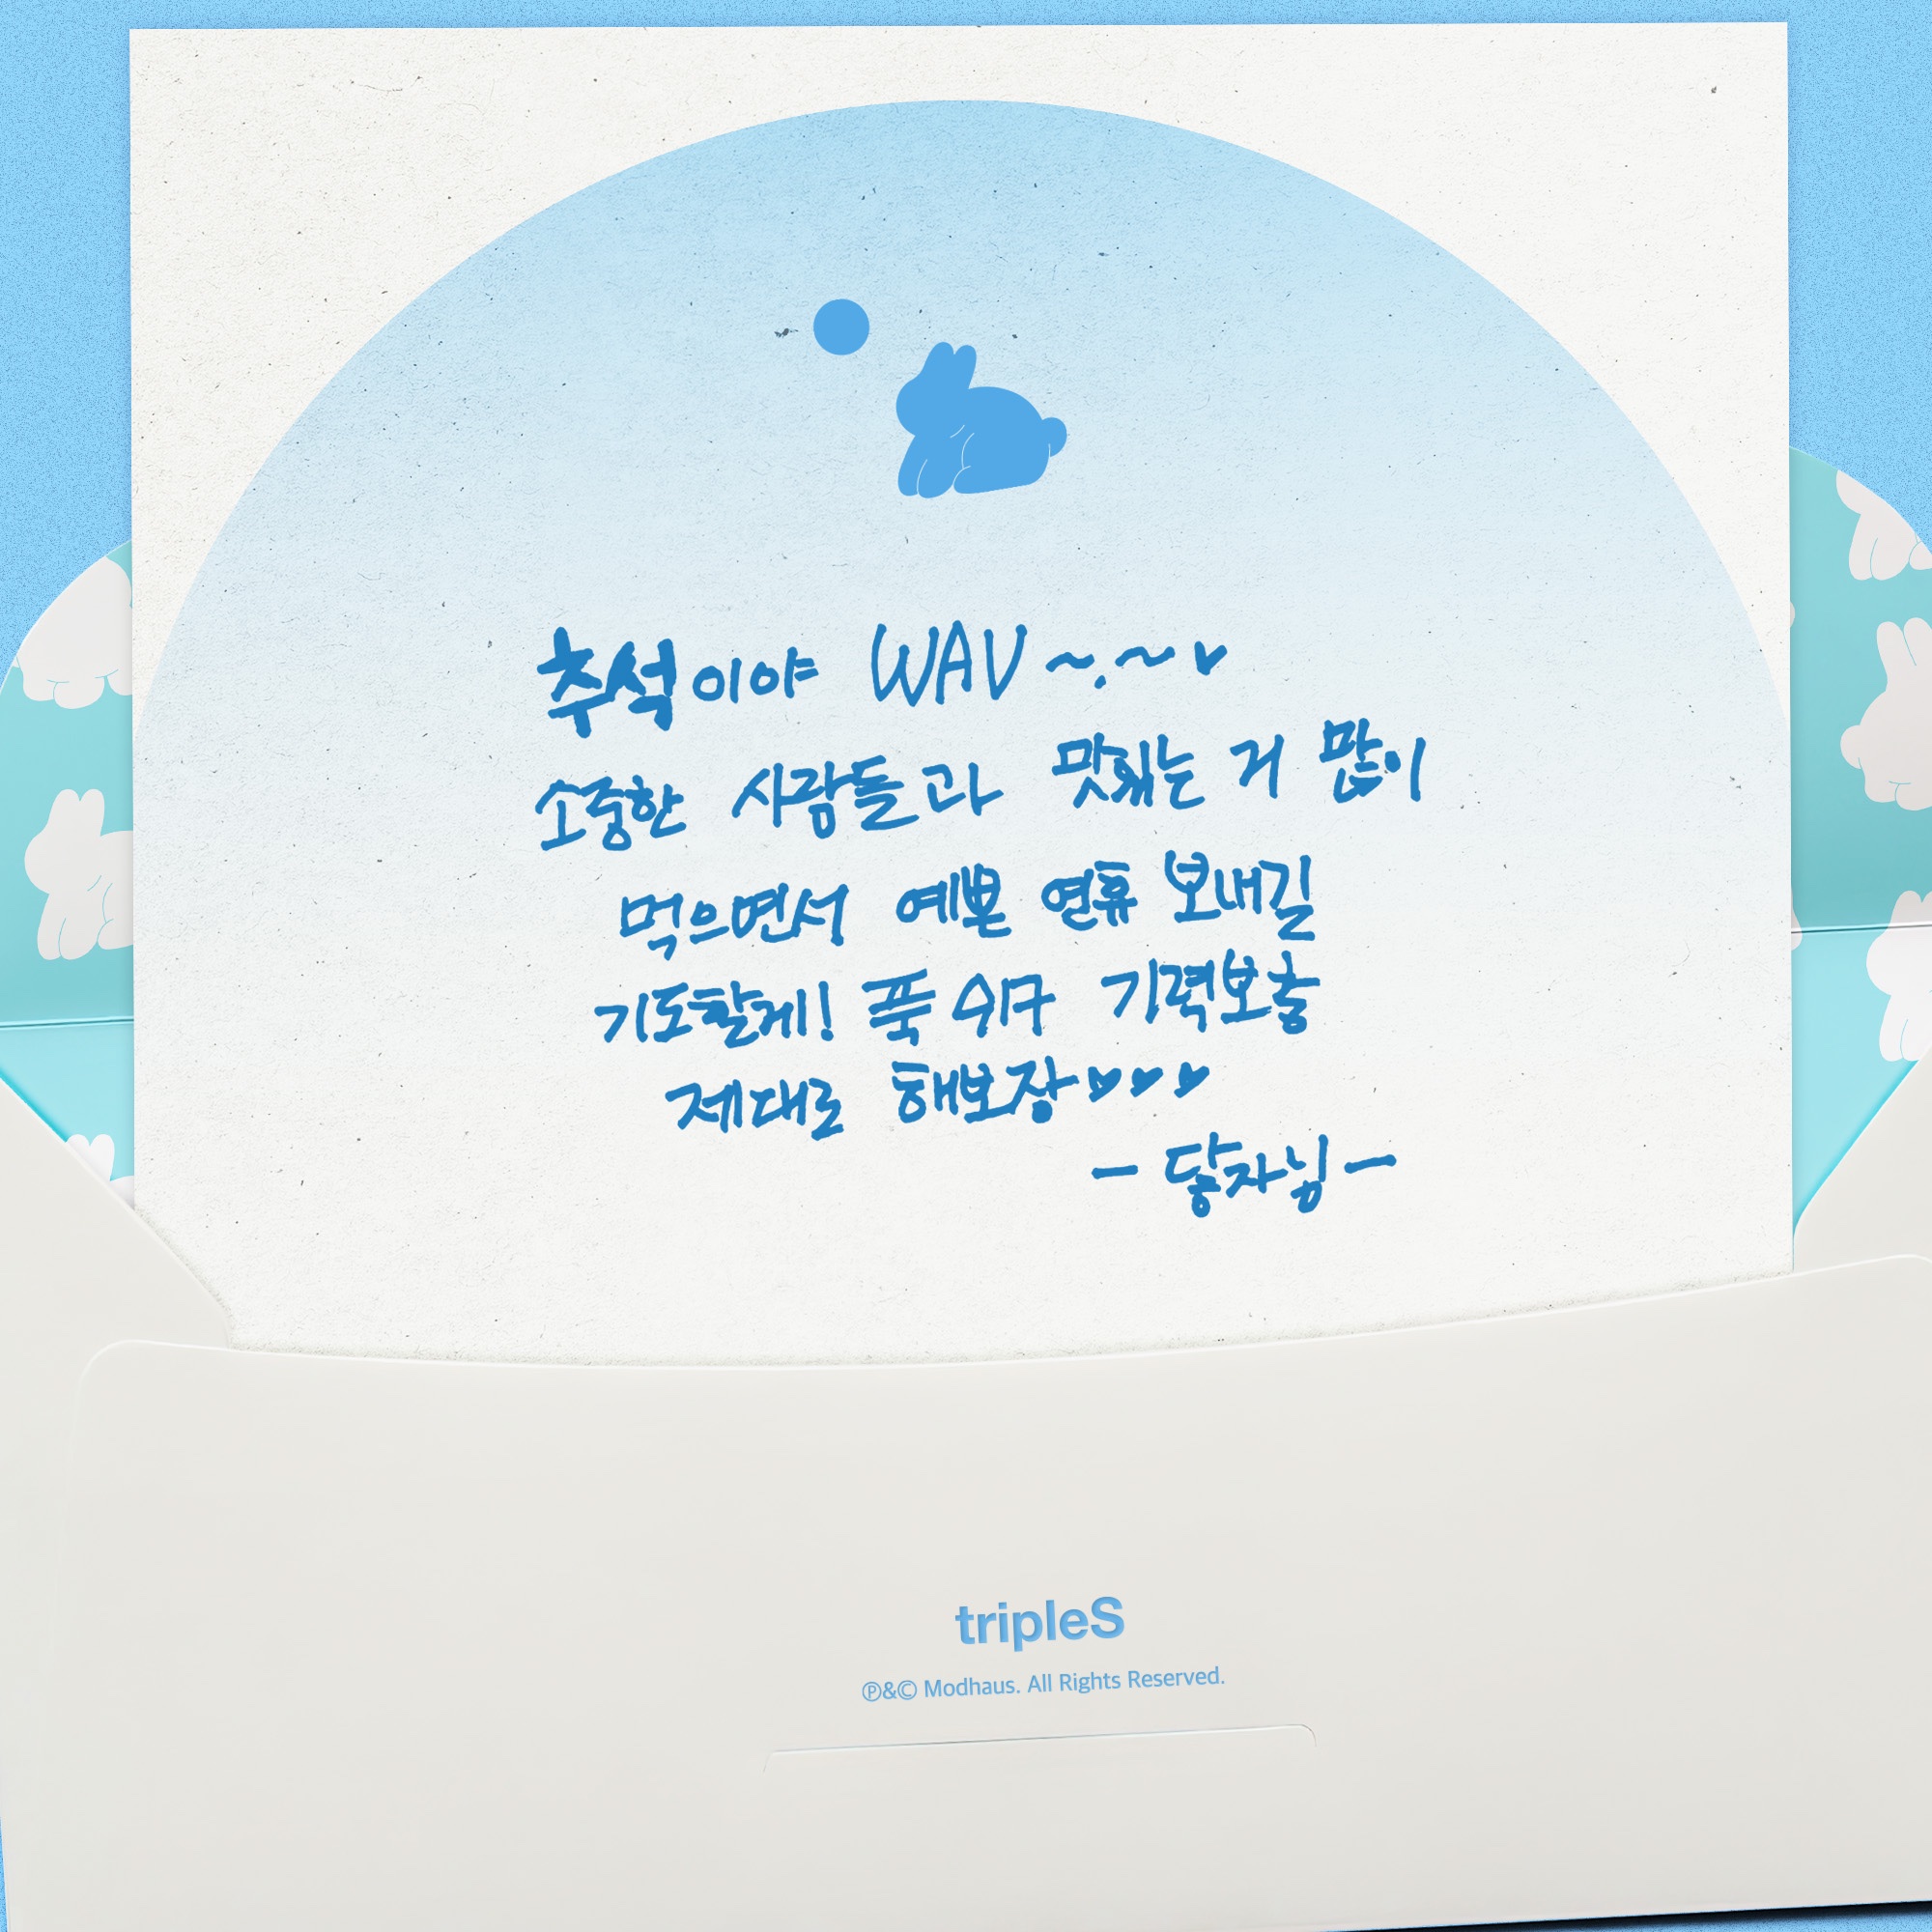 추석이야 WAV~.~♥
소중한 사람들과 맛있는 거 많이
먹으면서 예쁜 연휴 보내길
기도할게! 푹 쉬구 기력보충
제대로 해보장♥♥♥
- 댷자님 -
tripleS
℗&© Modhaus. All Rights Reserved.